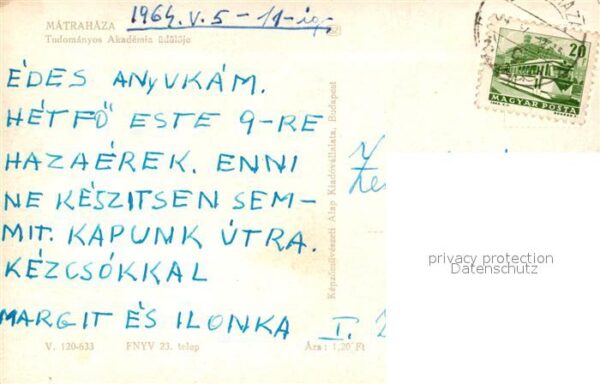 1964. V. 5 - 11-ig.
MÁTRAHÁZA
Tudományos Akadémia üdülője
20
MAGYAR POSTA
ÉDES ANYUKÁM.
HÉTFŐ ESTE 9-RE
HAZAÉREK. ENNI
NE KÉSZITSEN SEM-
MIT. KAPUNK ÚTRA.
KÉZCSÓKKAL
MARGIT ÉS ILONKA
I.
Képzőművészeti Alap Kiadóvállalata, Budapest
privacy protection
Datenschutz
V. 120-633 FNYV 23. telep Ára: 1,20 Ft